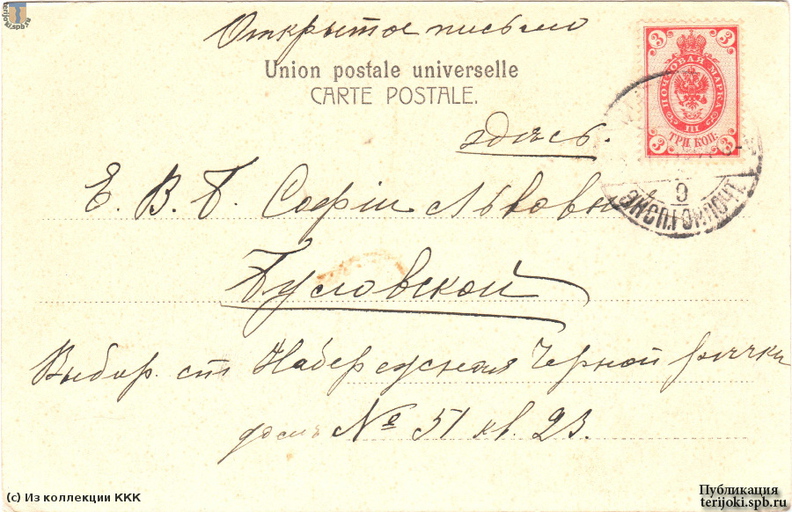 terijoki.spb.ru
Открытое письмо
Union postale universelle
CARTE POSTALE.
3 3
ПОЧТОВАЯ МАРКА
III
ТРИ КОП.
3 3
здѣсь.
9
ЭКСП.ГОР.ПОЧТ.
Е. В. Б. Софіи Львовны
Бусловской
Выбор. ст Набережная Черной рѣчки
домъ № 51 кв. 23.
(c) Из коллекции ККК
Публикация
terijoki.spb.ru